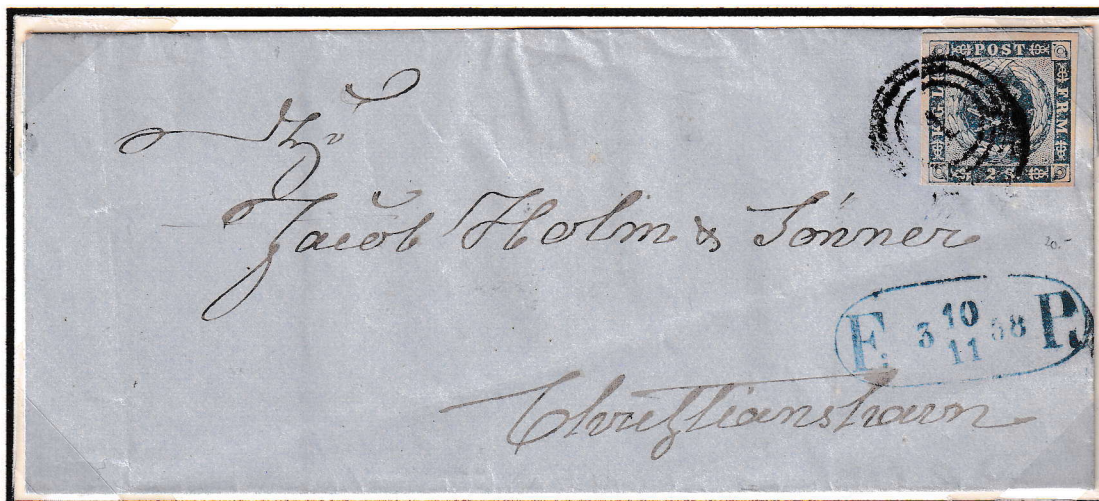 POST
KGL
FRM
2 S
Jacob Holm & Sönner
20.-
F: 3 10/11 58 P.
Christianshavn